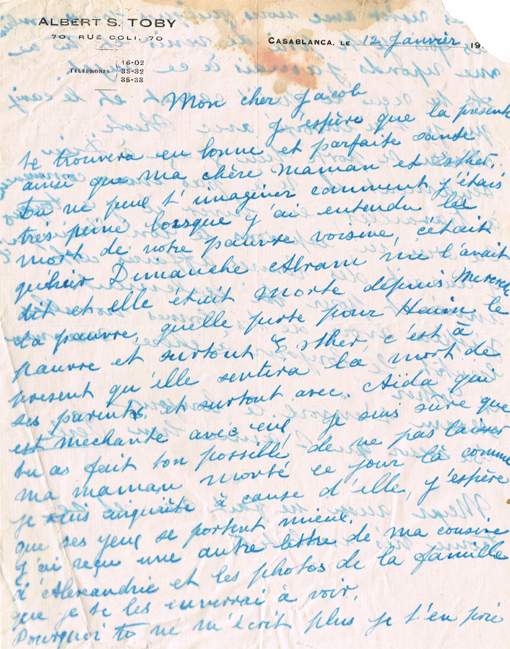 ALBERT S. TOBY
70, RUE COLI, 70
TÉLÉPHONES
16-02
35-32
35-38
CASABLANCA, LE 12 Janvier 19
Mon cher Jacob
J'éspère que la présente
te trouvera en bonne et parfaite santé
ainsi que ma chère maman et Esther,
tu ne peux t'imaginer comment j'étais
très peiné lorsque j'ai entendu la
mort de notre pauvre voisine, c'était
hier Dimanche Abram me l'avait
dit et elle était morte depuis Mercredi
La pauvre, quelle perte pour Haim le
pauvre et surtout Esther c'est à
present qu'elle sentira la mort de
ses parents et surtout avec Aïda qui
est méchante avec eux, je suis sure que
tu as fait ton possible de ne pas laisser
ma maman monté ce jour là comme
je suis inquiète à cause d'elle, j'éspère
que ses yeux se portent mieux.
J'ai reçu une autre lettre de ma cousine
d'Alexandrie et les photos de la famille
que je te les enverrai à voir.
Pourquoi tu ne m'écrit plus je t'en prie